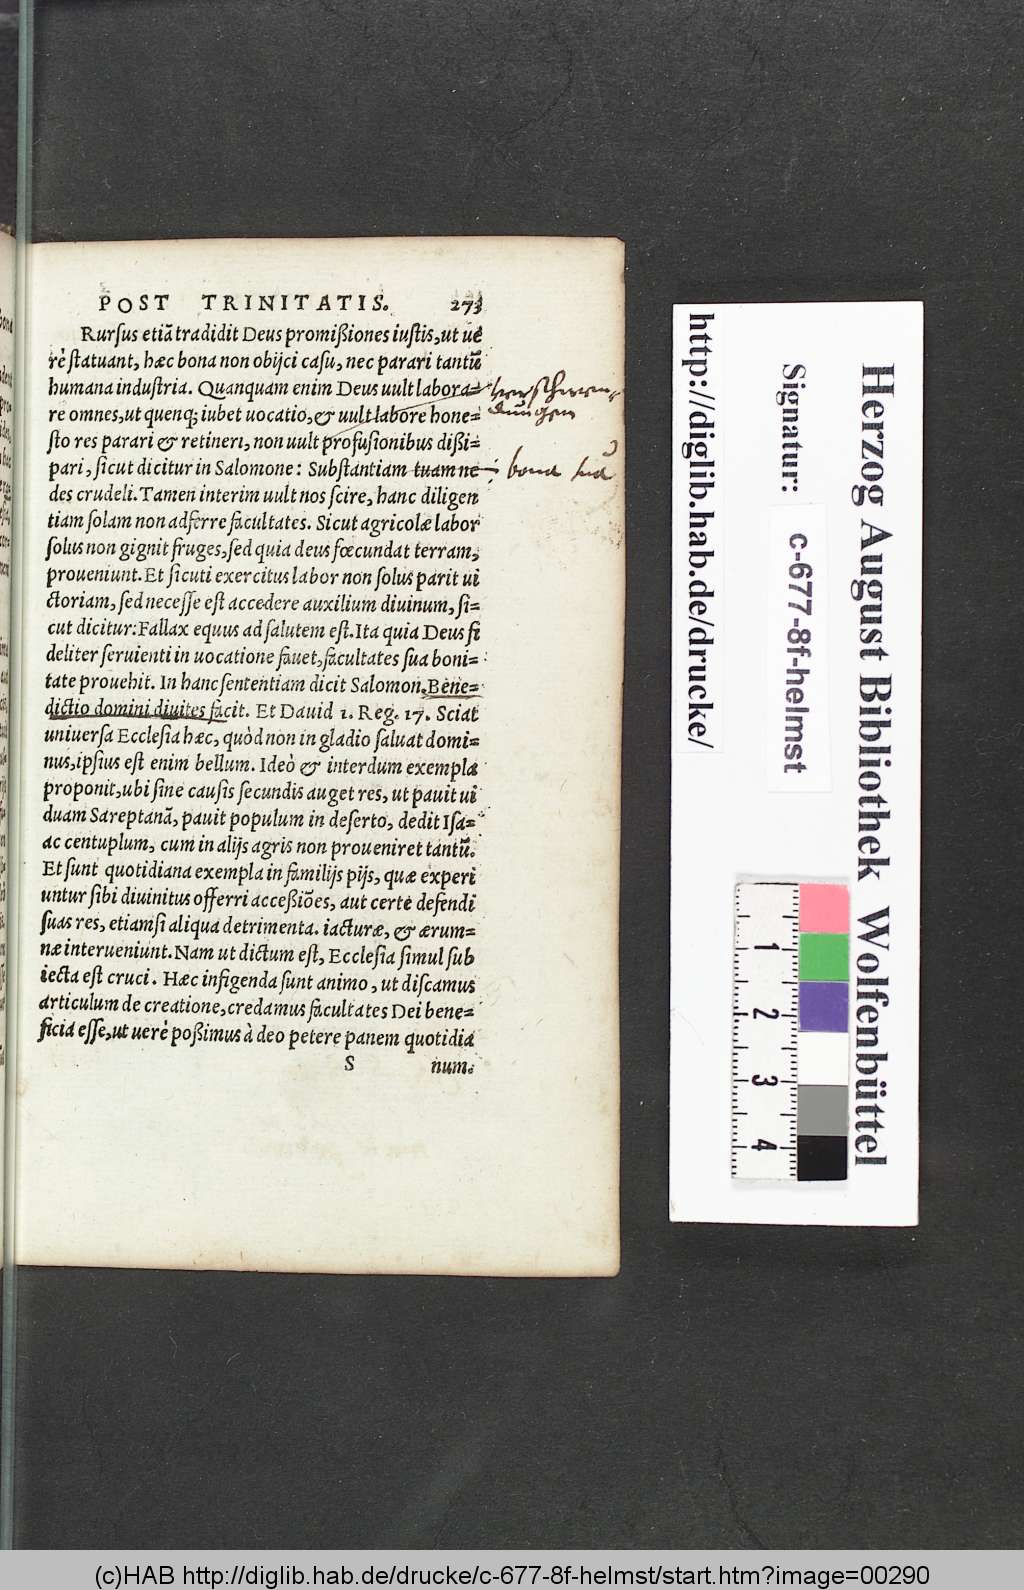 POST TRINITATIS. 273
Rursus etiã tradidit Deus promißiones iustis, ut ue
rè statuant, hæc bona non obijci casu, nec parari tantũ
humana industria. Quanquam enim Deus uult labora=
re omnes, ut quenq; iubet uocatio, & uult labore hone=
sto res parari & retineri, non uult profusionibus dißi=
pari, sicut dicitur in Salomone: Substantiam tuam ne
des crudeli. Tamen interim uult nos scire, hanc diligen
tiam solam non adferre facultates. Sicut agricolæ labor
solus non gignit fruges, sed quia deus fœcundat terram,
proueniunt. Et sicuti exercitus labor non solus parit ui
ctoriam, sed necesse est accedere auxilium diuinum, si=
cut dicitur: Fallax equus ad salutem est. Ita quia Deus fi
deliter seruienti in uocatione fauet, facultates sua boni=
tate prouehit. In hanc sententiam dicit Salomon. Bene=
dictio domini diuites facit. Et Dauid 1. Reg. 17. Sciat
uniuersa Ecclesia hæc, quòd non in gladio saluat domi=
nus, ipsius est enim bellum. Ideò & interdum exempla
proponit, ubi sine causis secundis auget res, ut pauit ui
duam Sareptanã, pauit populum in deserto, dedit Isa=
ac centuplum, cum in alijs agris non proueniret tantũ.
Et sunt quotidiana exempla in familijs pijs, quæ experi
untur sibi diuinitus offerri acceßiões, aut certè defendi
suas res, etiamsi aliqua detrimenta. iacturæ, & ærum=
næ interueniunt. Nam ut dictum est, Ecclesia simul sub
iecta est cruci. Hæc infigenda sunt animo, ut discamus
articulum de creatione, credamus facultates Dei bene=
ficia esse, ut uerè poßimus à deo petere panem quotidia
S num.
verschwen
dungen
bona tua
http://diglib.hab.de/drucke/
Signatur:
c-677-8f-helmst
Herzog August Bibliothek Wolfenbüttel
1
2
3
4
(c)HAB http://diglib.hab.de/drucke/c-677-8f-helmst/start.htm?image=00290